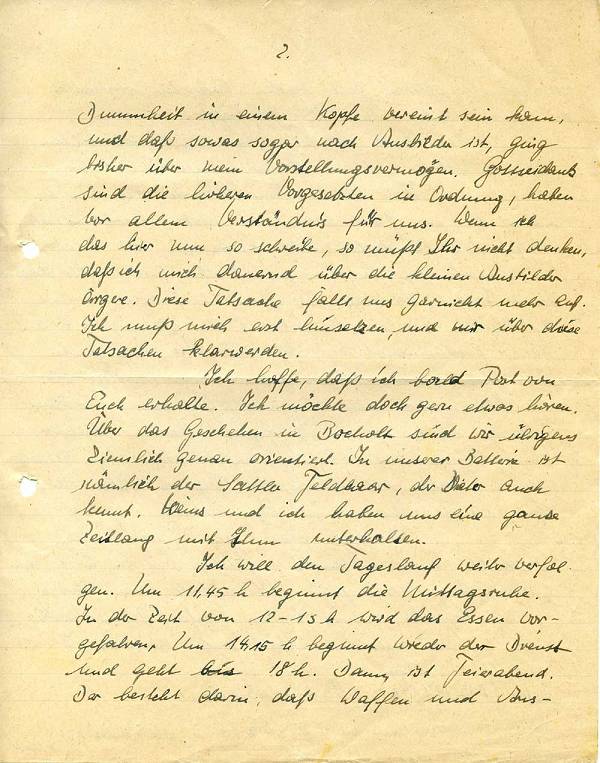 2.
Dummheit in einem Kopfe vereint sein kann,
und daß sowas sogar noch Ausbilder ist, ging
bisher über mein Vorstellungsvermögen. Gottseidank
sind die höheren Vorgesetzten in Ordnung, haben
vor allem Verständnis für uns. Wenn ich
das hier nun so schreibe, so müßt Ihr nicht denken,
daß ich mich dauernd über die kleinen Ausbilder
ärgere. Diese Tatsache fällt uns garnicht mehr auf.
Ich muß mich erst hinsetzen, und mir über diese
Tatsachen klarwerden.
Ich hoffe, daß ich bald Post von
Euch erhalte. Ich möchte doch gern etwas hören.
Über das Geschehen in Bocholt sind wir übrigens
ziemlich genau orientiert. In unserer Batterie ist
nämlich der Feldhaar, der Dieter auch
kennt. Heinz und ich haben uns eine ganze
Zeitlang mit Ihm unterhalten.
Ich will den Tageslauf weiter verfol-
gen. Um 11,45 h beginnt die Mittagsruhe.
In der Zeit von 12-13 h wird das Essen vor-
gefahren. Um 14,15 h beginnt wieder der Dienst
und geht bis 18 h. Dann ist Feierabend.
Der besteht darin, daß Waffen und Aus-